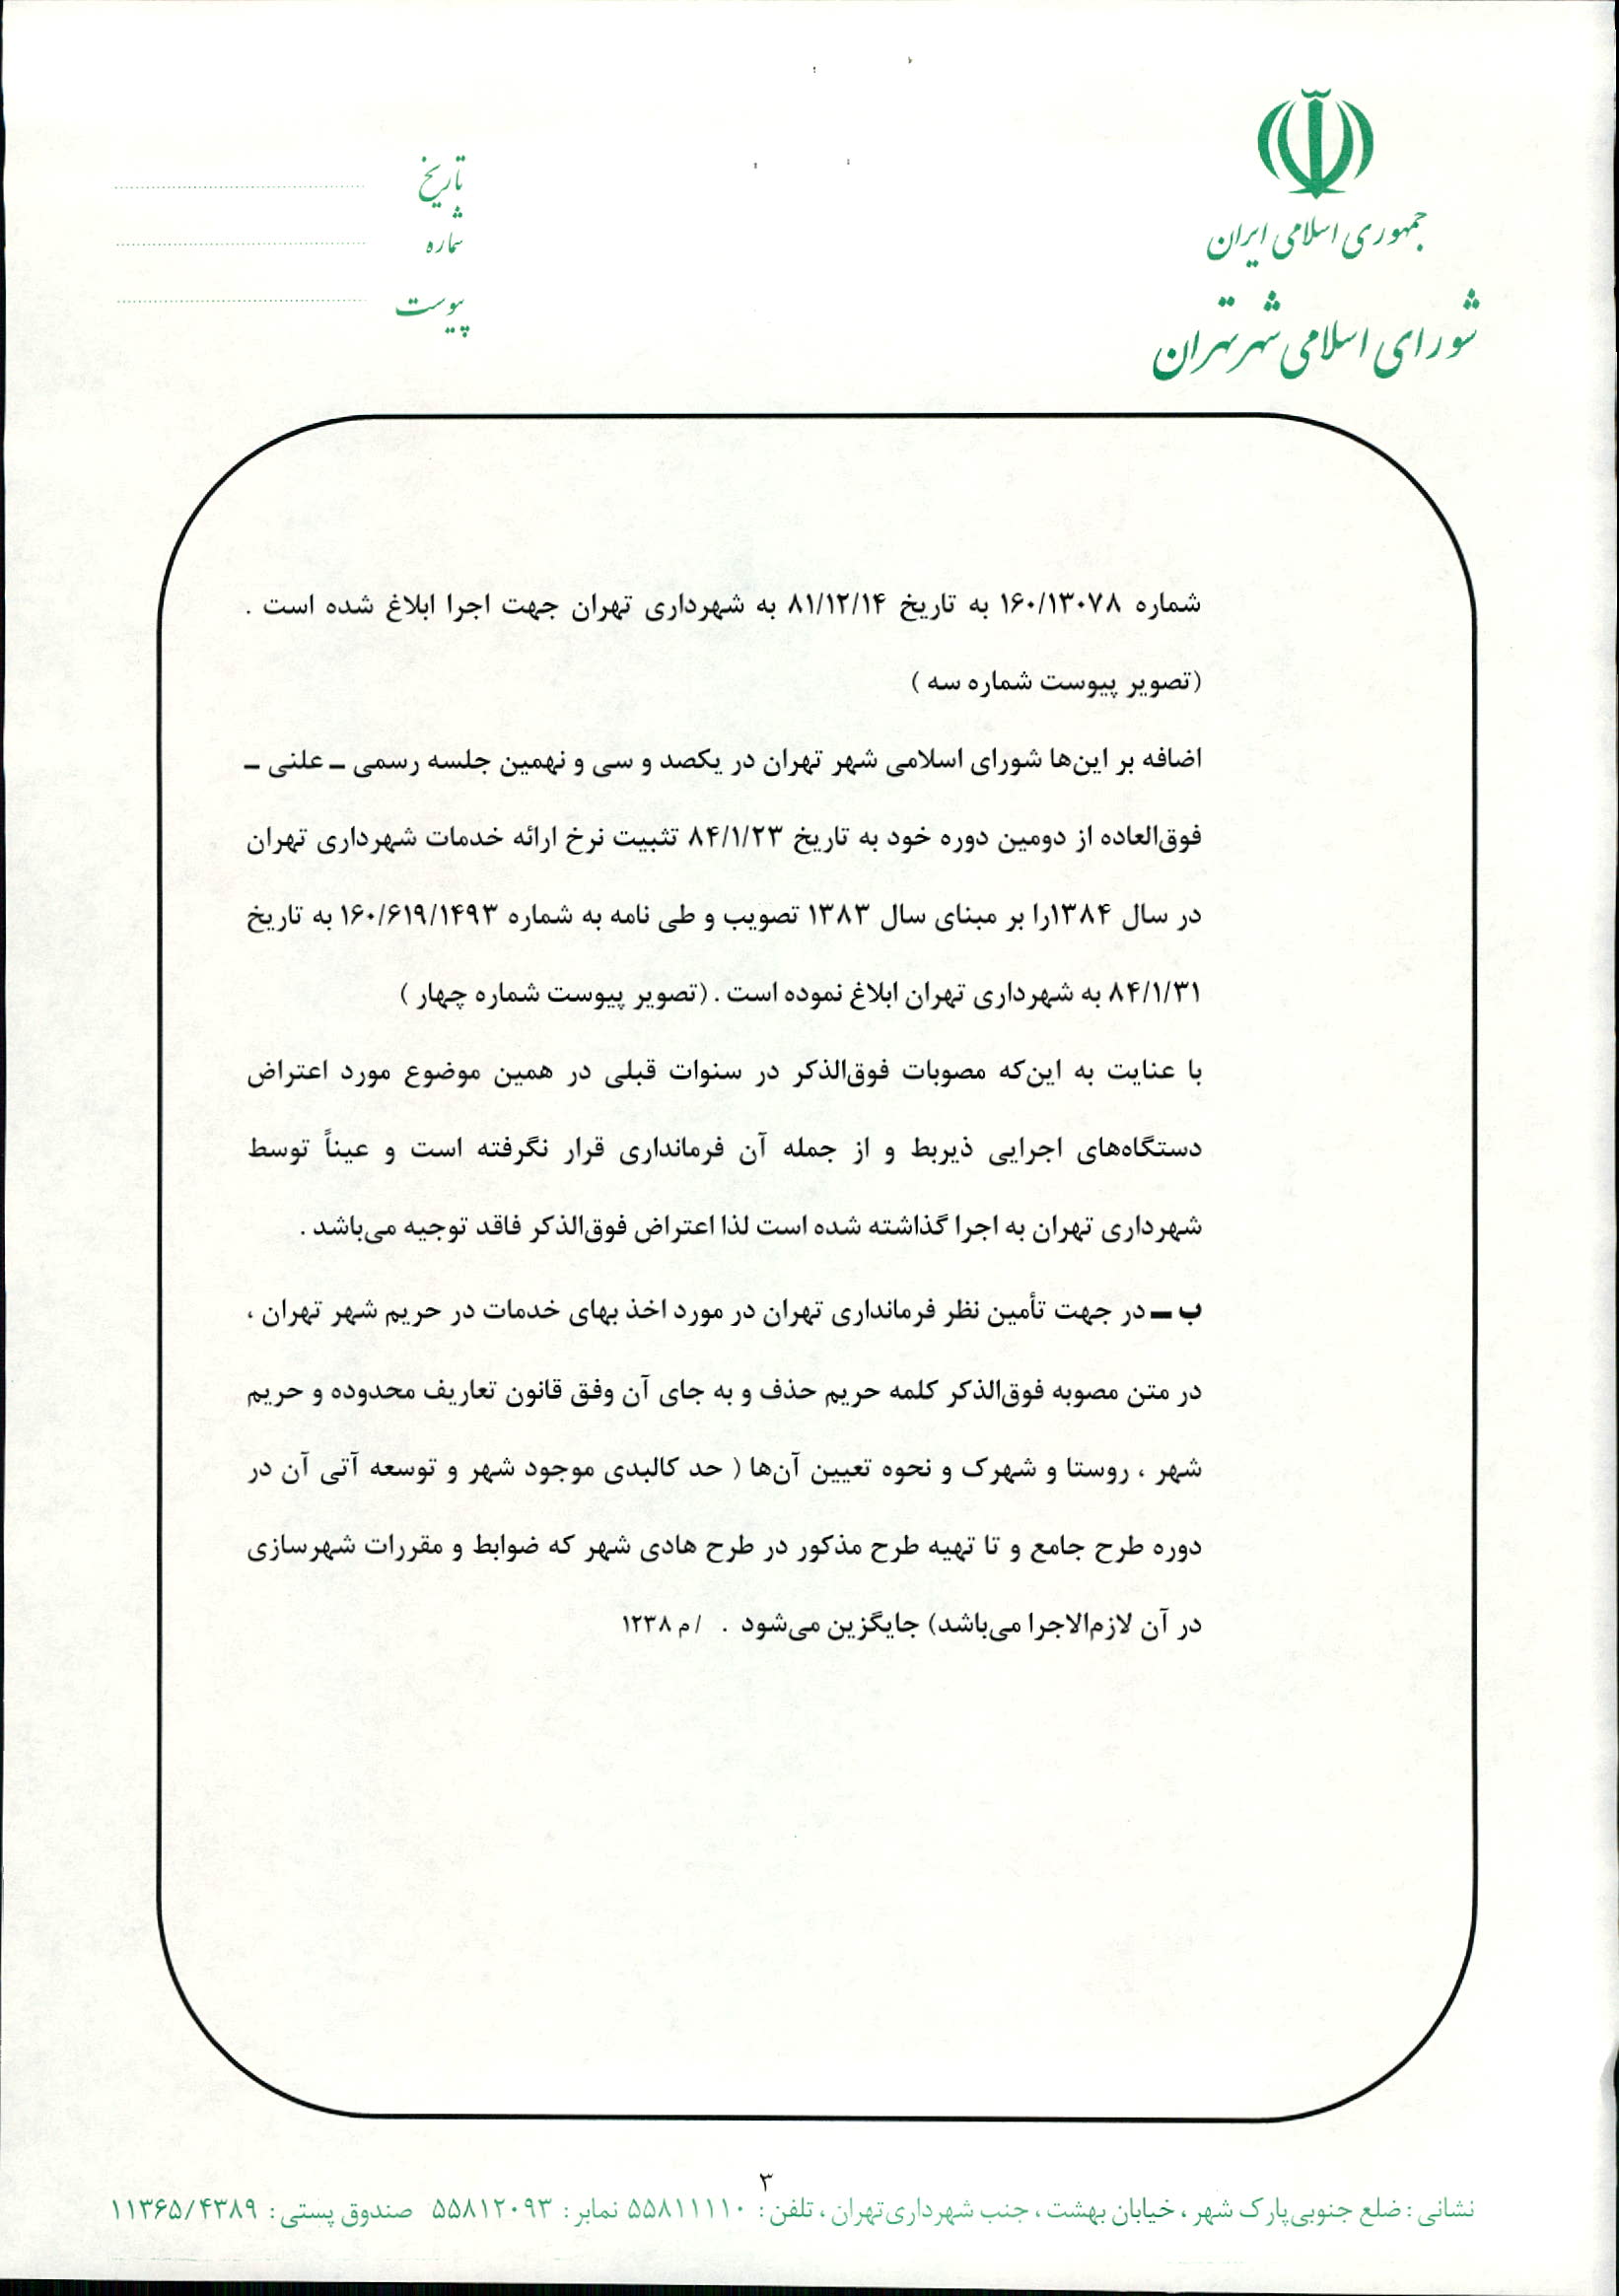 جمهوری اسلامی ایران
شورای اسلامی شهر تهران
تاریخ
شماره
پیوست
شماره ۱۶۰/۱۳۰۷۸ به تاریخ ۸۱/۱۲/۱۴ به شهرداری تهران جهت اجرا ابلاغ شده است .
(تصویر پیوست شماره سه )
اضافه بر این‌ها شورای اسلامی شهر تهران در یکصد و سی و نهمین جلسه رسمی ـ علنی ـ
فوق‌العاده از دومین دوره خود به تاریخ ۸۴/۱/۲۳ تثبیت نرخ ارائه خدمات شهرداری تهران
در سال ۱۳۸۴را بر مبنای سال ۱۳۸۳ تصویب و طی نامه به شماره ۱۶۰/۶۱۹/۱۴۹۳ به تاریخ
۸۴/۱/۳۱ به شهرداری تهران ابلاغ نموده است . (تصویر پیوست شماره چهار )
با عنایت به این‌که مصوبات فوق‌الذکر در سنوات قبلی در همین موضوع مورد اعتراض
دستگاه‌های اجرایی ذیربط و از جمله آن فرمانداری قرار نگرفته است و عیناً توسط
شهرداری تهران به اجرا گذاشته شده است لذا اعتراض فوق‌الذکر فاقد توجیه می‌باشد .
ب ـ در جهت تأمین نظر فرمانداری تهران در مورد اخذ بهای خدمات در حریم شهر تهران ،
در متن مصوبه فوق‌الذکر کلمه حریم حذف و به جای آن وفق قانون تعاریف محدوده و حریم
شهر ، روستا و شهرک و نحوه تعیین آن‌ها ( حد کالبدی موجود شهر و توسعه آتی آن در
دوره طرح جامع و تا تهیه طرح مذکور در طرح هادی شهر که ضوابط و مقررات شهرسازی
در آن لازم‌الاجرا می‌باشد) جایگزین می‌شود . /م ۱۲۳۸
۳
نشانی : ضلع جنوبی‌پارک شهر ، خیابان بهشت ، جنب شهرداری‌تهران ، تلفن : ۵۵۸۱۱۱۱۰ نمابر : ۵۵۸۱۲۰۹۳ صندوق پستی : ۱۱۳۶۵/۴۳۸۹